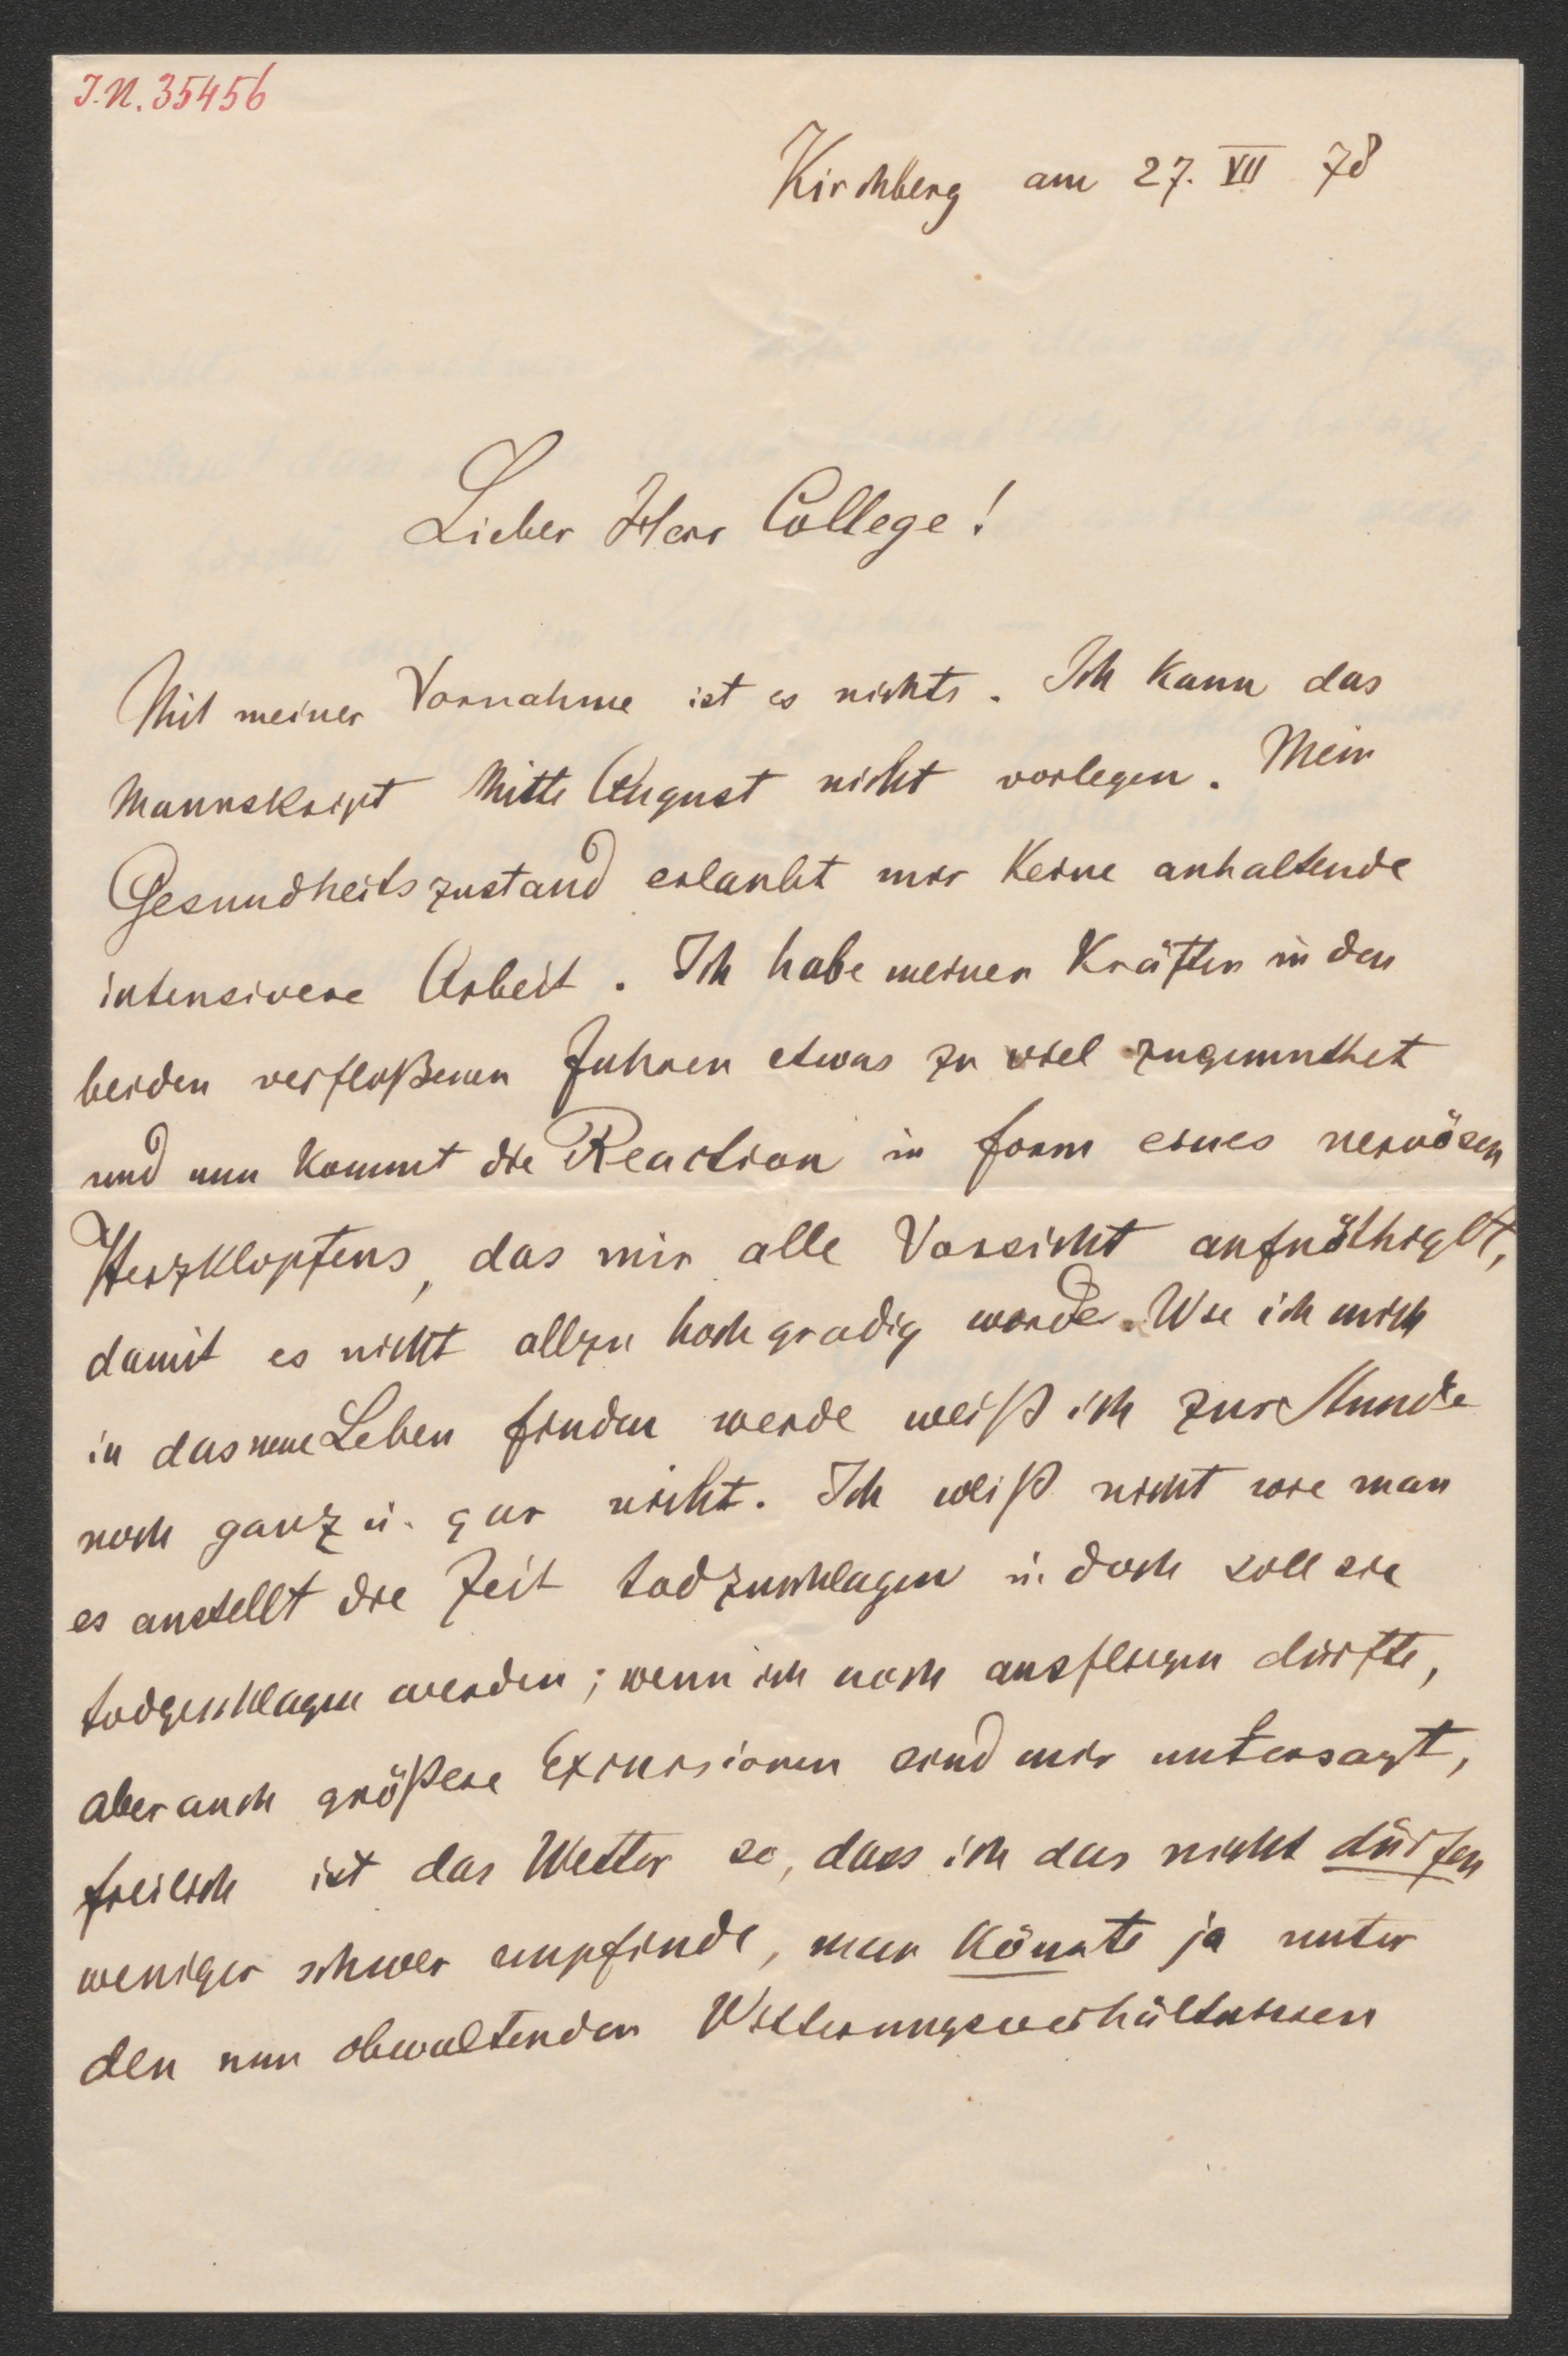 J.N. 35456
Kirchberg am 27. VII 78
Lieber Herr College!
Mit meiner Vornahme ist es nichts. Ich kann das
Manuskript Mitte August nicht vorlegen. Mein
Gesundheitszustand erlaubt mir keine anhaltende
intensivere Arbeit. Ich habe meinen Kräften in den
beiden verfloßenen Jahren etwas zu viel zugemuthet
und nun kommt die Reaction in form eines nervösen
Herzklopfens, das mir alle Vorsicht aufnöthiglt,
damit es nicht allzu hochgradig werde. Wie ich mich
in das neue Leben finden werde weiß ich zur Stunde
noch ganz u. gar nicht. Ich weiß nicht wie man
es anstellt die Zeit todzuschlagen u. doch soll sie
todgeschlagen werden; wenn ich noch ausfliegen dürfte,
aber auch größere Excursionen sind mir untersagt,
freilich ist das Wetter so, dass ich das nicht dürfen
weniger schwer empfinde, man könnte ja unter
den nun obwaltenden Witterungsverhältnissen